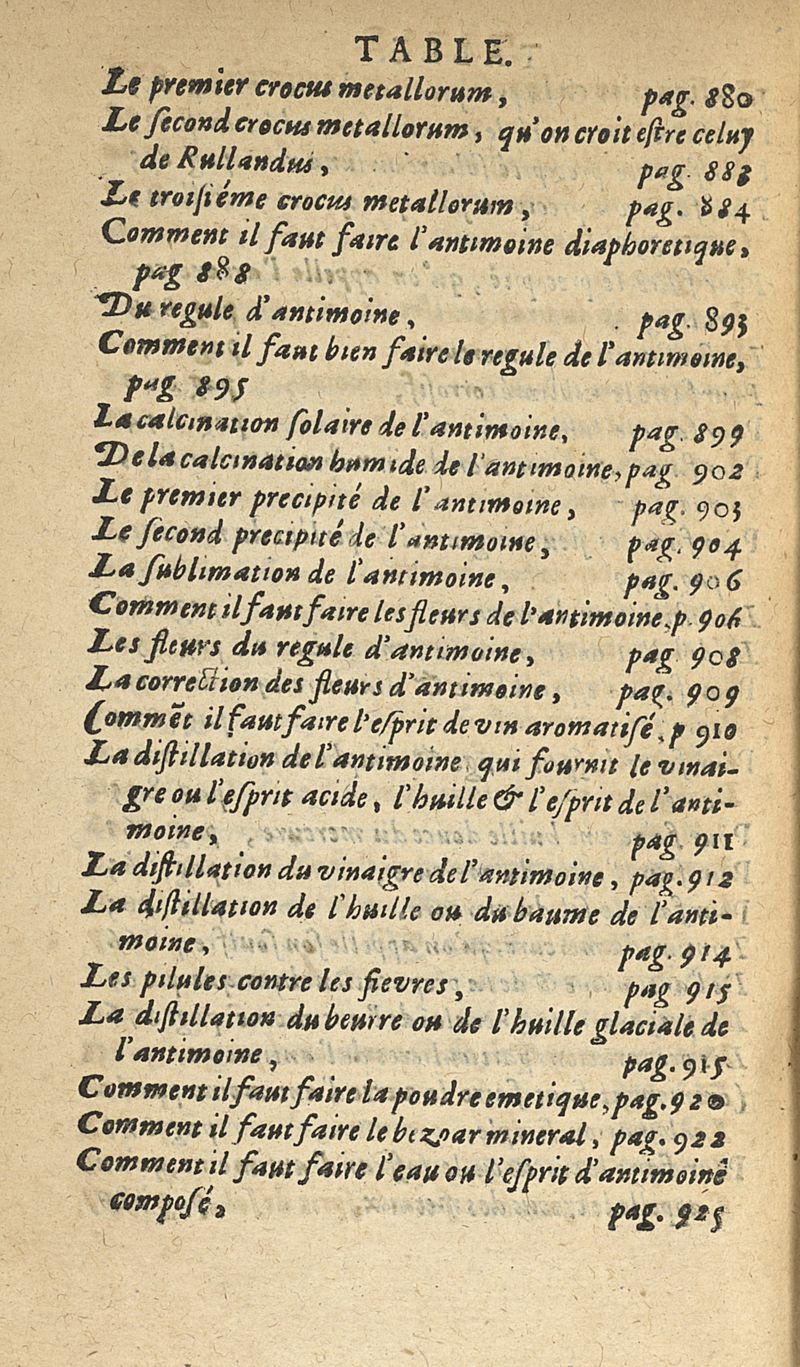 TABLE.
Le premier crocus metallorum, pag. 880
Le ſecond crocus metallorum, qu'on croit eſtre celuy
de Rullandus, pag. 883
Le troiſiéme crocus metallorum, pag. 884
Comment il faut faire l'antimoine diaphoretique,
pag 888
Du regule d'antimoine, pag. 893
Comment il faut bien faire le regule de l'antimoine,
pag 895
La calcination ſolaire de l'antimoine, pag. 899
De la calcination humide de l'antimoine, pag 902
Le premier precipité de l'antimoine, pag. 903
Le ſecond precipité de l'antimoine, pag. 904
La ſublimation de l'antimoine, pag. 906
Comment il faut faire les fleurs de l'antimoine, p. 906
Les fleurs du regule d'antimoine, pag 908
La correction des fleurs d'antimoine, pag. 909
Commẽt il faut faire l'eſprit de vin aromatiſé, p 910
La diſtillation de l'antimoine qui fournit le vinai-
gre ou l'eſprit acide, l'huille & l'eſprit de l'anti-
moine, pag 911
La diſtillation du vinaigre de l'antimoine, pag. 912
La diſtillation de l'huille ou du baume de l'anti-
moine, pag. 914
Les pilules contre les fievres, pag 915
La diſtillation du beurre ou de l'huille glaciale de
l'antimoine, pag. 915
Comment il faut faire la poudre emetique, pag. 920
Comment il faut faire le bezoar mineral, pag. 922
Comment il faut faire l'eau ou l'eſprit d'antimoine
compoſé, pag. 925